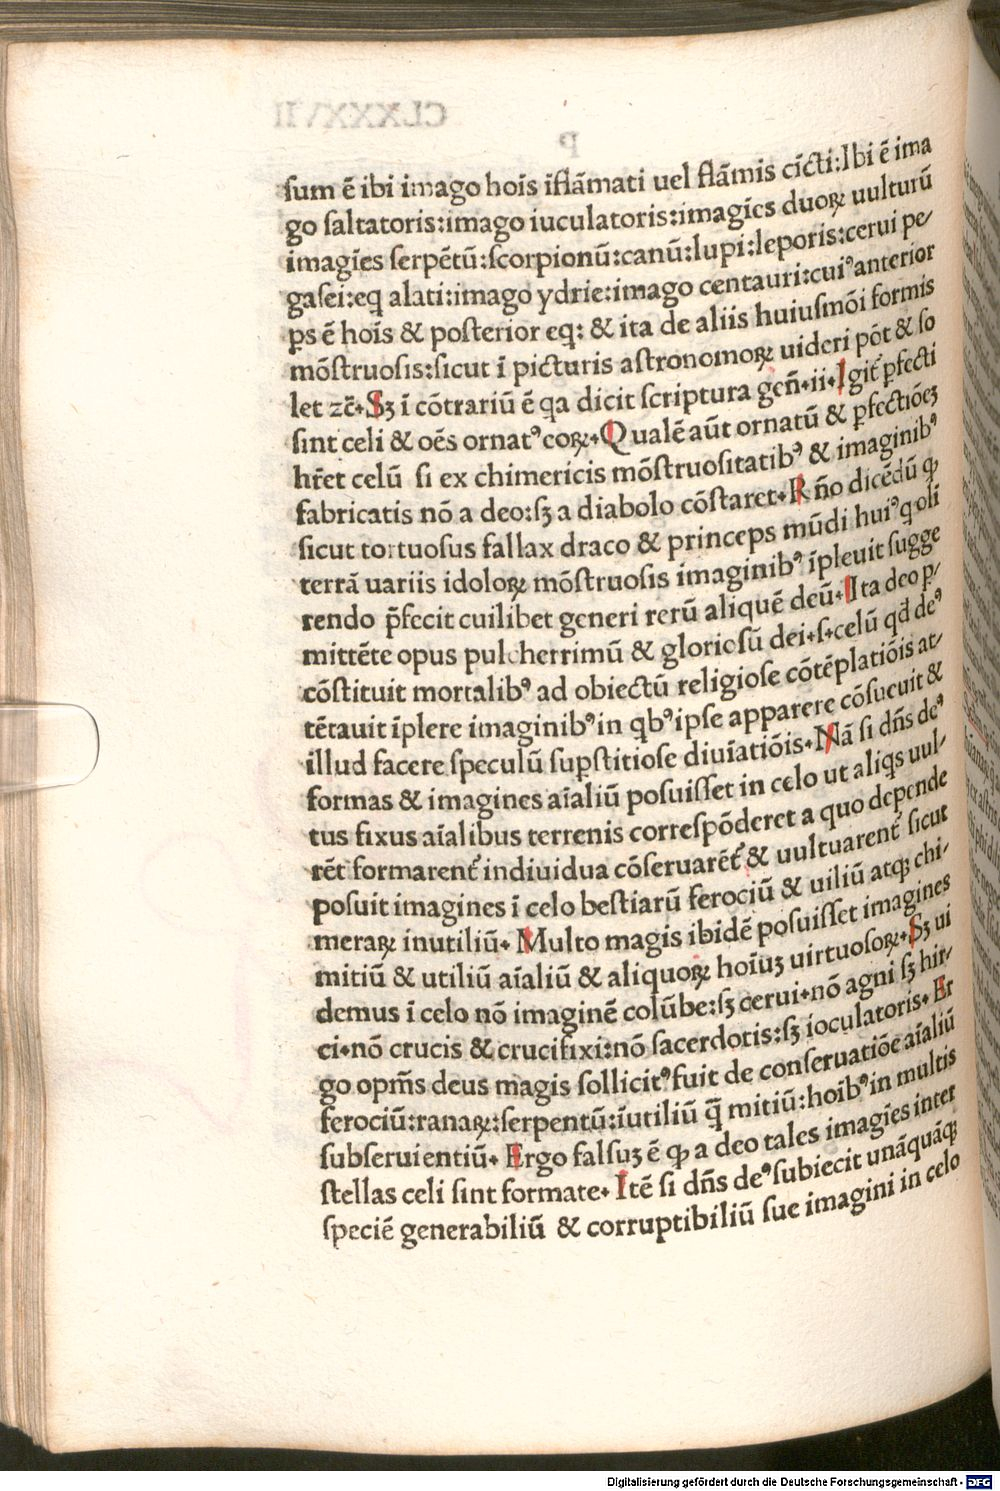 sum ē ibi imago hoīs iflāmati uel flāmis cīcti:Ibi ē ima
go saltatoris:imago iuculatoris:imagīes duoꝝ uulturū
imagīes serpētū:scorpionū:canū:lupi:leporis:cerui pe/
gasei:eq̨ alati:imago ydrie:imago centauri:cuiꝰ anterior
ꝑs ē hoīs & posterior eq̨: & ita de aliis huiusmōi formis
mōstruosis:sicut ī picturis astronomoꝝ uideri pōt & so
let zc̄. Sꝫ ī cōtrariū ē qa dicit scriptura geñ.ii.Igit᷑ ꝑfecti
sint celi & oēs ornatꝰ eoꝝ. Qualē aūt ornatū & ꝑfectiōeꝫ
hr̄et celū si ex chimericis mōstruositatibꝰ & imaginibꝰ
fabricatis nō a deo:sꝫ a diabolo cōstaret. Rño dicēdū ꝙ
sicut tortuosus fallax draco & princeps mūdi huiꝰ q̇ oli
terrā uariis idoloꝝ mōstruosis imaginibꝰ īpleuit sugge
rendo p̄fecit cuilibet generi rerū aliquē deū. Ita deo ꝑ/
mittēte opus pulcherrimū & gloriosū dei.s.celū qd̄ deꝰ
cōstituit mortalibꝰ ad obiectū religiose cōtēplatiōis at/
tētauit īplere imaginibꝰ in q̇bꝰ ipse apparere cōsueuit &
illud facere speculū suꝑstitiose diuīatiōis. Nā si dñs deꝰ
formas & imagines aīaliū posuisset in celo ut aliq̇s uul/
tus fixus aīalibus terrenis correspōderet a quo depende
rēt formarent᷑ indiuidua cōseruarēt᷑ & uultuarent᷑ sicut
posuit imagines ī celo bestiarū ferociū & uiliū atqꝫ chi/
meraꝝ inutiliū. Multo magis ibidē posuisset imagines
mitiū & utiliū aīaliū & aliquoꝝ hoīuꝫ uirtuosoꝝ. Sꝫ ui
demus ī celo nō imaginē colūbe:sꝫ cerui.nō agni sꝫ hir/
ci.nō crucis & crucifixi:nō sacerdotis:sꝫ ioculatoris. Er
go opīm̄s deus magis sollicitꝰ fuit de conseruatiōe aīaliū
ferociū:ranaꝝ:serpentū:īutiliū q̄̇ mitiū:hoībꝰ in multis
subseruientiū. Ergo falsuꝫ ē ꝙ a deo tales imagīes inter
stellas celi sint formate. Itē si dñs deꝰ subiecit unāquāqꝫ
speciē generabiliū & corruptibiliū sue imagini in celo
Digitalisierung gefördert durch die Deutsche Forschungsgemeinschaft - DFG